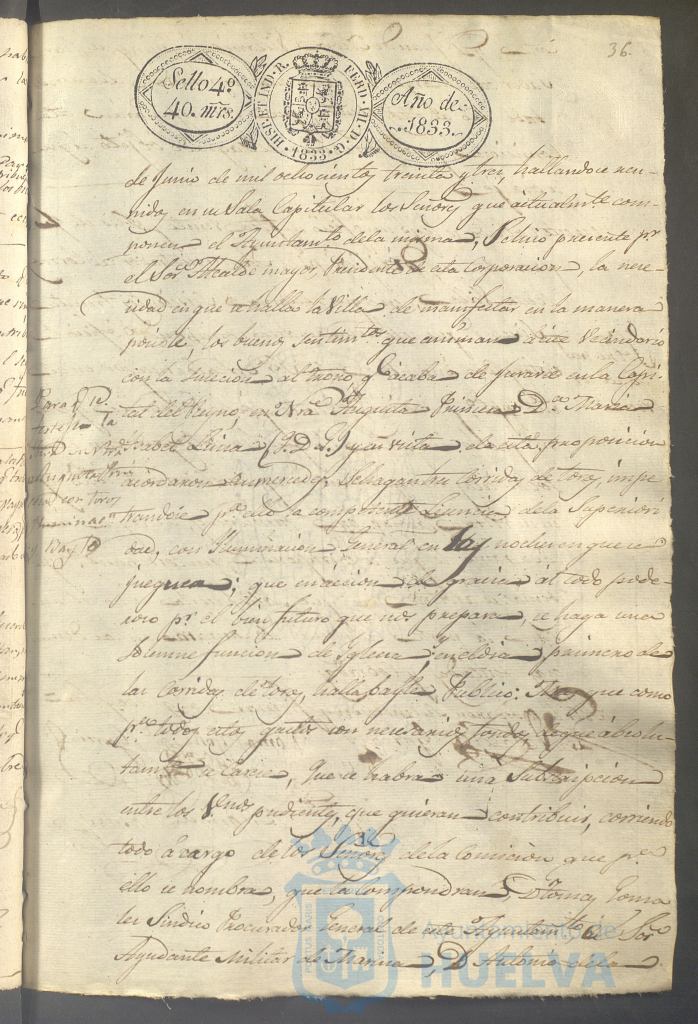 36.
Sello 4º
40. mrs.
HISP. ET IND. R. FERD. VII. D. G. 1833
Año de
1833.
de Junio de mil ochocientos treinta y tres, hallandose reu-
nidos en su Sala Capitular los Señores que actualmte com-
ponen el Ayuntamto de la misma, Se hizo presente pr
el Sor Alcalde mayor, Presidente de esta Corporacion, la nece-
sidad en que se halla la Villa de manifestar en la manera
posible, los buenos sentimtos que animan a este Vecindario
con la al trono q acaba de jurarse en la Capi-
tal del Reyno, en Nra Augusta Princesa Da Maria
Isabel Luisa (q. D. g.) y en vista de esta proposicion
acordaron sus mercedes, Se hagan tres corridas de toros, impe-
trandose pa ello la competente Licencia de la Superiori-
dad, con Iluminacion General en las noches en que se
jueguen; que en accion de gracias al todo pode-
roso pr el bien futuro que nos prepara, se haga una
Solemne funcion de Iglesia, en el dia primero de
las Corridas de toros, halla bayle Publico: Y que como
pa todos estos gastos son necesarios fondos de que absolu-
tamte se carece, Que se habra una Subscripcion
entre los Vnos pudientes, que quieran contribuir, corriendo
todo a cargo de los Señores de la Comicion que pa
ello se nombra, que la compondran, Dn Tomas
Sindico Procurador General de este Ayuntamto el Sor
Ayudante Militar de Marina, Dn Antonio de la
Para q se
Augusta
con toros
Iluminacon
y Bayle
Ayuntamiento de
HUELVA